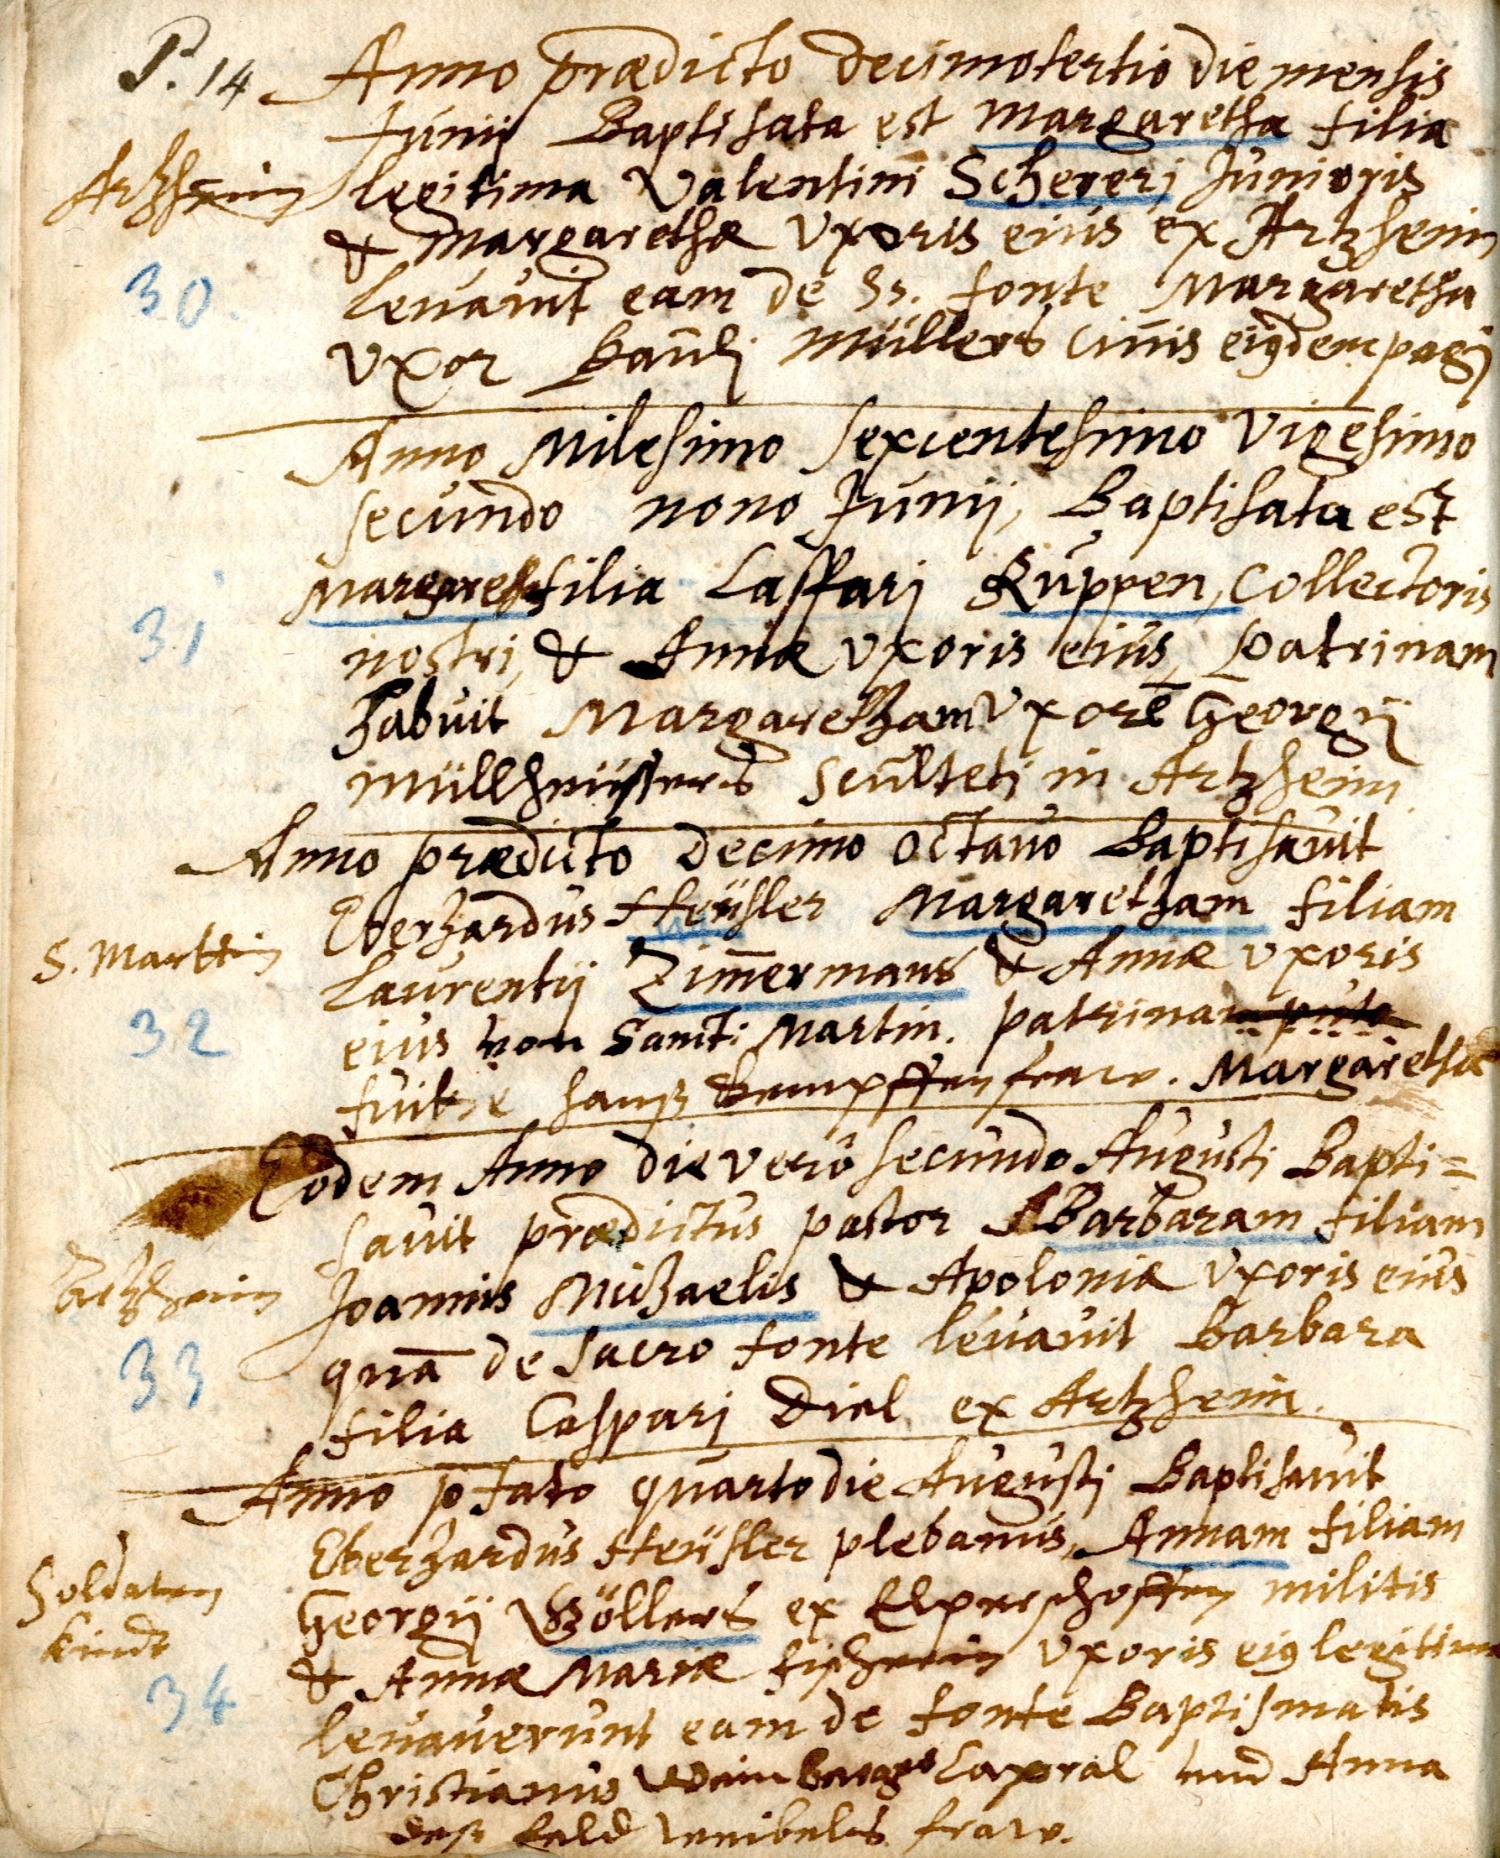 P. 14
Anno prædicto decimotertio die mensis
Junij Baptisata est Margaretha filia
Artzheim
legitima Valentini Schererj Junioris
& Margarethæ Vxoris eius ex Artzheim
30.
leuauit eam de Ss. fonte Margaretha
Vxor Paulj Müllers Ciuis eiusdem pagj
Anno Milesimo sexcentesimo Vigesimo
secundo nono Junij, Baptisata est
Margareth filia Casparj Ruppen, Collectoris
31
nostri, & Annæ Vxoris eius, Patrinam
habuit Margaretham Vxorē Georgij
Müllheüsers Sculteti in Artzheim
Anno prædicto decimo octauo Baptisauit
Eberhardus Heüsler Margaretham filiam
S. Marttin
Laurentij Zim̄ermans & Annæ Vxoris
32
eius von Sancti Martin. patrina
fuit hanß Kempffen fraw. Margaretha
Eodem Anno die verò secundo Augusti Bapti=
sauit prædictus pastor Barbaram filiam
Artzheim
Joannis Michaelis & Apoloniæ Vxoris eius
33
quā de sacro fonte leuauit Barbara
filia Casparj Diel ex Artzheim.
Anno pfato quarto die Augustj Baptisauit
Eberhardus Heüsler plebanus, Annam filiam
Soldaten
Georgij Wöllers ex militis
Kindt
& Annæ Mariæ Vxoris eius legitimæ
34
leuauerunt eam de fonte Baptismatis
Christianus Corporal und Anna
deß feld weibels fraw.